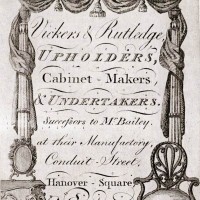 Vickers & Rutledge,
UPHOLDERS,
Cabinet - Makers
& UNDERTAKERS.
Successors to Mr Bailey.
at their Manufactory,
Conduit Street,
Hanover - Square,